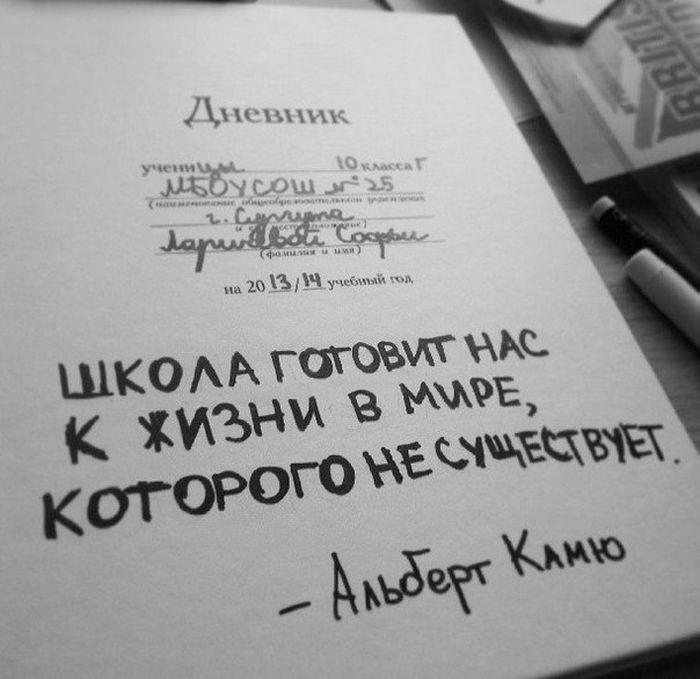 Дневник
ученицы 10 класса Г
МБОУСОШ №25
(наименование общеобразовательного учреждения
г. Сургута
Софьи
(фамилия и имя)
на 2013/14 учебный год
ШКОЛА ГОТОВИТ НАС
К ЖИЗНИ В МИРЕ,
КОТОРОГО НЕ СУЩЕСТВУЕТ.
– Альберт Камю
BRITIS